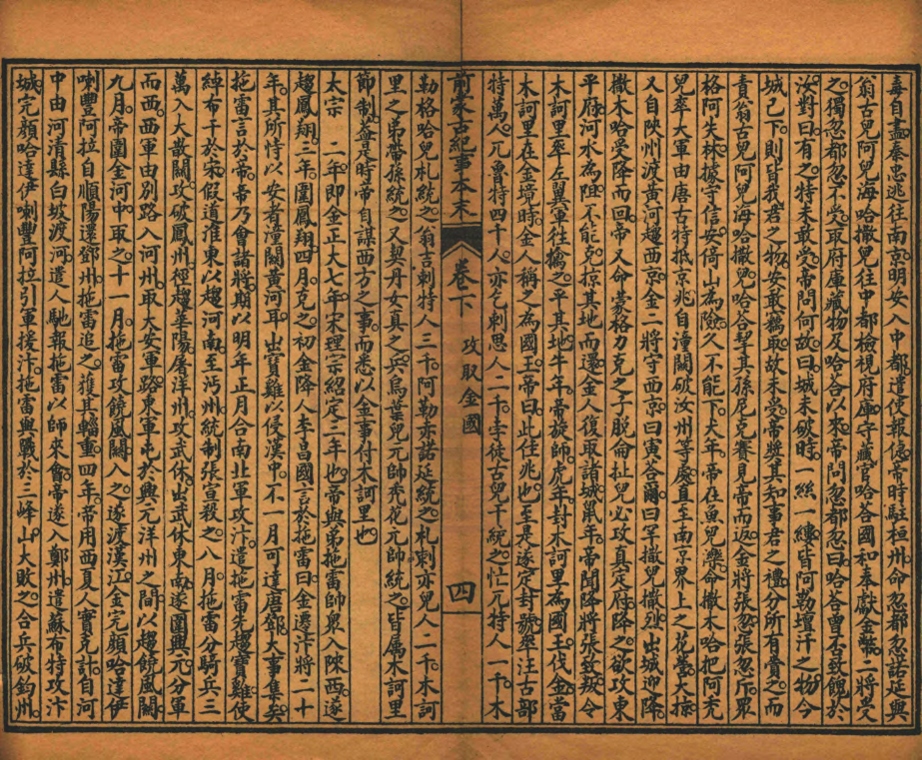 毒自盡秦忠逃往南京明安入中都遣使報德帝時駐桓州命忽都忽諾延與
翁古兒阿兒海哈撒兒往中都檢視府庫守藏官哈荅國和奉獻金幣二將受
之獨忽都忽不受取府庫藏物及哈荅以來帝問忽都忽曰哈荅曾古致餽於
汝對曰有之特未敢受帝問何故曰城未破時一絲一縷皆阿勒壇汗之物今
城已下則皆我君之物安敢竊取故未受帝獎其知事君之禮分所有賞之而
責翁古兒阿兒海哈撒兒哈荅挈其孫尼克賽見帝而返金將張忽張忽斤眾
格阿失林據守信安倚山為險久不能下犬年帝在魚兒濼命撒木哈把阿禿
兒率大軍由唐古特抵京兆自潼關破汝州等處直至南京界上之花營大掠
又自陝州渡黃河趨西京金二將守西京曰寅荅爾曰罕撒兒撒烈出城迎降
撒木哈受降而回帝又命蒙格力克之子脫侖扯兒必攻真定府降之欲攻東
平府河水為阻不能克掠其地而還金人復取諸城鼠年帝聞降將張致叛令
木訶里率左翼軍往擒之平其地牛年帝旋師虎年封木訶里為國王伐金當
木訶里在金境時金人稱之為國王帝曰此佳兆也至是遂定封號率汪古部
特萬人兀魯特四千人亦乞剌思人二千孛徒古兒干統之忙兀特人一千木
前蒙古紀事本末 卷下 攻取金國 四
勒格哈兒札統之翁吉剌特人三千阿勒赤諾延統之札剌亦兒人二千木訶
里之弟帶孫統之又契丹女真之兵烏葉兒元帥禿花元帥統之皆属木訶里
節制葢是時帝自謀西方之事而悉以金事付木訶里也
太宗 二年即金正大七年宋理宗紹定三年也帝與弟拖雷帥眾入陝西遂
趨鳳翔三年圍鳳翔四月克之初金降人李昌國言於拖雷曰金遷汴將二十
年其所恃以安者潼關黃河耳出寶雞以侵漢中不一月可達唐鄧大事集矣
拖雷言於帝帝乃會諸將期以明年正月合南北軍攻汴遣拖雷先趨寶雞使
綽布干於宋假道淮東以趨河南至沔州統制張宣殺之八月拖雷分騎兵三
萬入大散關攻破鳳州徑趨華陽屠洋州攻武休出武休東南遂圍興元分軍
而西西軍由別路入河州取大安軍路東軍屯於興元洋州之間以趨饒風關
九月帝圍金河中取之十一月拖雷攻饒風關入之遂渡漢江金完顏哈達伊
喇豐阿拉自順陽還鄧州拖雷追之獲其輜重四年帝用西夏人實克計自河
中由河清縣白坡渡河遣人馳報拖雷以師來會帝遂入鄭州遣蘇布特攻汴
城完顏哈達伊喇豐阿拉引軍援汴拖雷與戰於三峰山大敗之合兵破鈞州